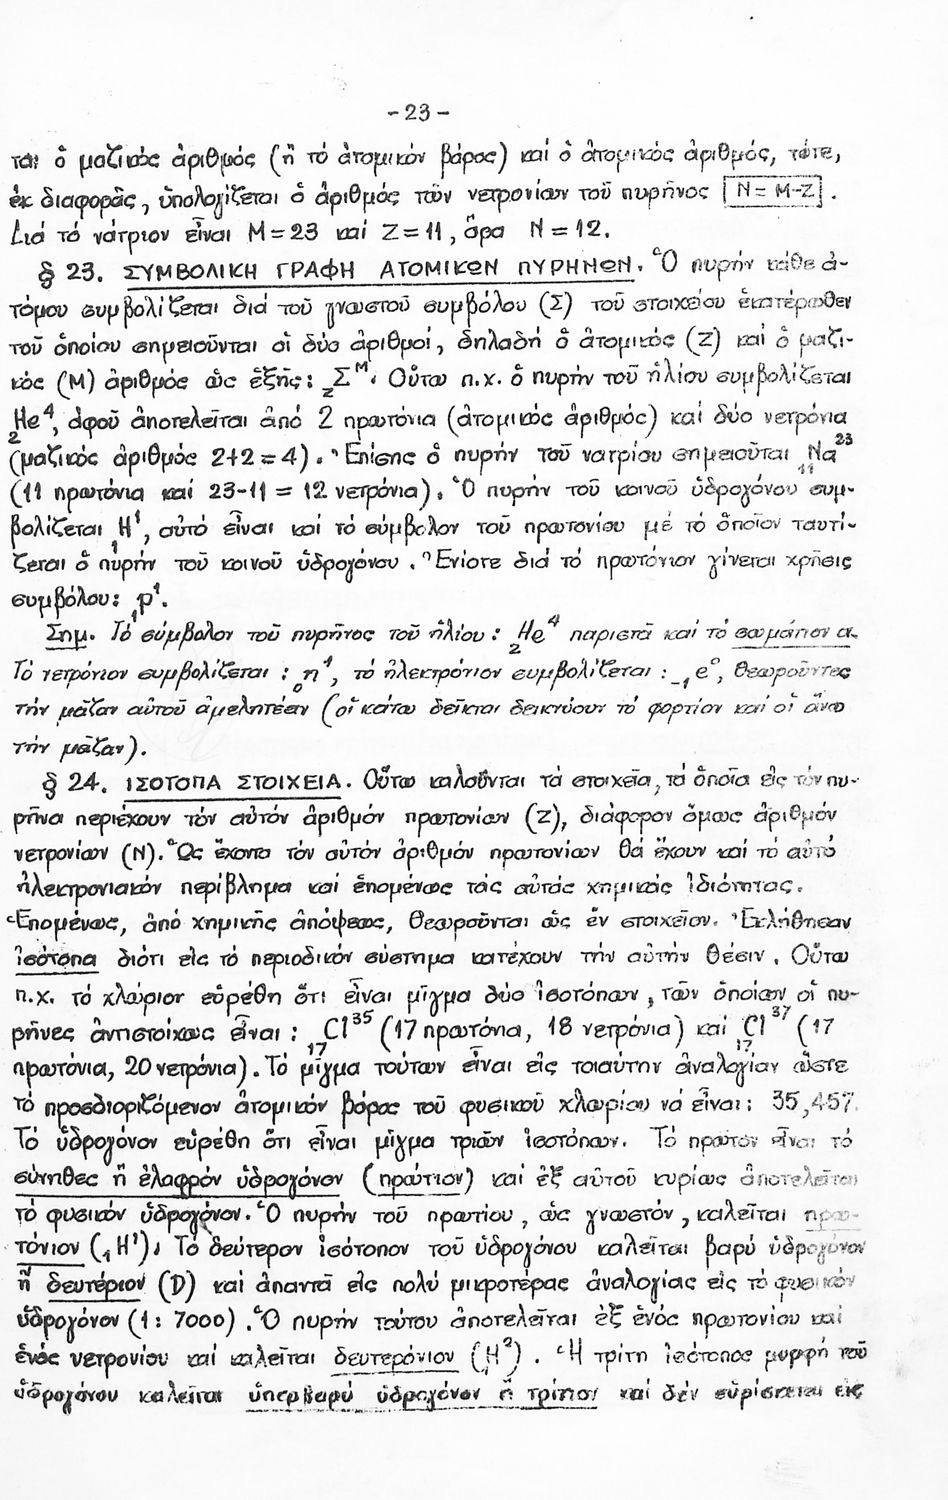 -23-
ται ὁ μαζικός ἀριθμός (ἤ τό ἀτομικόν βάρος) καί ὁ ἀτομικός ἀριθμός, τότε,
ἐκ διαφορᾶς, ὑπολογίζεται ὁ ἀριθμός τῶν νετρονίων τοῦ πυρῆνος N = M-Z .
Διά τό νάτριον εἶναι M = 23 καί Z = 11, ἄρα N = 12.
§ 23. ΣΥΜΒΟΛΙΚΗ ΓΡΑΦΗ ΑΤΟΜΙΚΩΝ ΠΥΡΗΝΩΝ. Ὁ πυρήν κάθε ἀ-
τόμου συμβολίζεται διά τοῦ γνωστοῦ συμβόλου (Σ) τοῦ στοιχείου ἑκατέρωθεν
τοῦ ὁποίου σημειοῦνται οἱ δύο ἀριθμοί, δηλαδή ὁ ἀτομικός (Z) καί ὁ μαζι-
κός (M) ἀριθμός ὡς ἑξῆς: ZΣᴹ. Οὕτω π.χ. ὁ πυρήν τοῦ ἡλίου συμβολίζεται
₂He⁴, ἀφοῦ ἀποτελεῖται ἀπό 2 πρωτόνια (ἀτομικός ἀριθμός) καί δύο νετρόνια
(μαζικός ἀριθμός 2+2 = 4). Ἐπίσης ὁ πυρήν τοῦ νατρίου σημειοῦται ₁₁Na²³
(11 πρωτόνια καί 23-11 = 12 νετρόνια). Ὁ πυρήν τοῦ κοινοῦ ὑδρογόνου συμ-
βολίζεται ₁H¹, αὐτό εἶναι καί τό σύμβολον τοῦ πρωτονίου μέ τό ὁποῖον ταυτί-
ζεται ὁ πυρήν τοῦ κοινοῦ ὑδρογόνου. Ἐνίοτε διά τό πρωτόνιον γίνεται χρῆσις
συμβόλου: ₁p¹.
Σημ. Τό σύμβολον τοῦ πυρῆνος τοῦ ἡλίου: ₂He⁴ παριστᾶ καί τό σωμάτιον α.
Τό νετρόνιον συμβολίζεται : ₀n¹, τό ἠλεκτρόνιον συμβολίζεται : ₋₁e⁰, θεωροῦντες
τήν μᾶζαν αὐτοῦ ἀμελητέαν (οἱ κάτω δεῖκται δεικνύουν τό φορτίον καί οἱ ἄνω
τήν μᾶζαν).
§ 24. ΙΣΟΤΟΠΑ ΣΤΟΙΧΕΙΑ. Οὕτω καλοῦνται τά στοιχεῖα, τά ὁποῖα εἰς τόν πυ-
ρῆνα περιέχουν τόν αὐτόν ἀριθμόν πρωτονίων (Z), διάφορον ὅμως ἀριθμόν
νετρονίων (N). Ὡς ἔχοντα τόν αὐτόν ἀριθμόν πρωτονίων θά ἔχουν καί τό αὐτό
ἠλεκτρονιακόν περίβλημα καί ἑπομένως τάς αὐτάς χημικάς ἰδιότητας.
Ἑπομένως, ἀπό χημικῆς ἀπόψεως, θεωροῦνται ὡς ἕν στοιχεῖον. Ἐκλήθησαν
ἰσότοπα διότι εἰς τό περιοδικόν σύστημα κατέχουν τήν αὐτήν θέσιν. Οὕτω
π.χ. τό χλώριον εὑρέθη ὅτι εἶναι μῖγμα δύο ἰσοτόπων, τῶν ὁποίων οἱ πυ-
ρῆνες ἀντιστοίχως εἶναι : ₁₇Cl³⁵ (17 πρωτόνια, 18 νετρόνια) καί ₁₇Cl³⁷ (17
πρωτόνια, 20 νετρόνια). Τό μῖγμα τούτων εἶναι εἰς τοιαύτην ἀναλογίαν ὥστε
τό προσδιοριζόμενον ἀτομικόν βάρος τοῦ φυσικοῦ χλωρίου νά εἶναι: 35,457.
Τό ὑδρογόνον εὑρέθη ὅτι εἶναι μῖγμα τριῶν ἰσοτόπων. Τό πρῶτον εἶναι τό
σύνηθες ἤ ἐλαφρόν ὑδρογόνον (πρώτιον) καί ἐξ αὐτοῦ κυρίως ἀποτελεῖται
τό φυσικόν ὑδρογόνον. Ὁ πυρήν τοῦ πρωτίου, ὡς γνωστόν, καλεῖται πρω-
τόνιον (₁H¹). Τό δεύτερον ἰσότοπον τοῦ ὑδρογόνου καλεῖται βαρύ ὑδρογόνον
ἤ δευτέριον (D) καί ἀπαντᾶ εἰς πολύ μικροτέρας ἀναλογίας εἰς τό φυσικόν
ὑδρογόνον (1: 7000). Ὁ πυρήν τούτου ἀποτελεῖται ἐξ ἑνός πρωτονίου καί
ἑνός νετρονίου καί καλεῖται δευτερόνιον (₁H²). Ἡ τρίτη ἰσότοπος μορφή τοῦ
ὑδρογόνου καλεῖται ὑπερβαρύ ὑδρογόνον ἤ τρίτιον καί δέν εὑρίσκεται εἰς